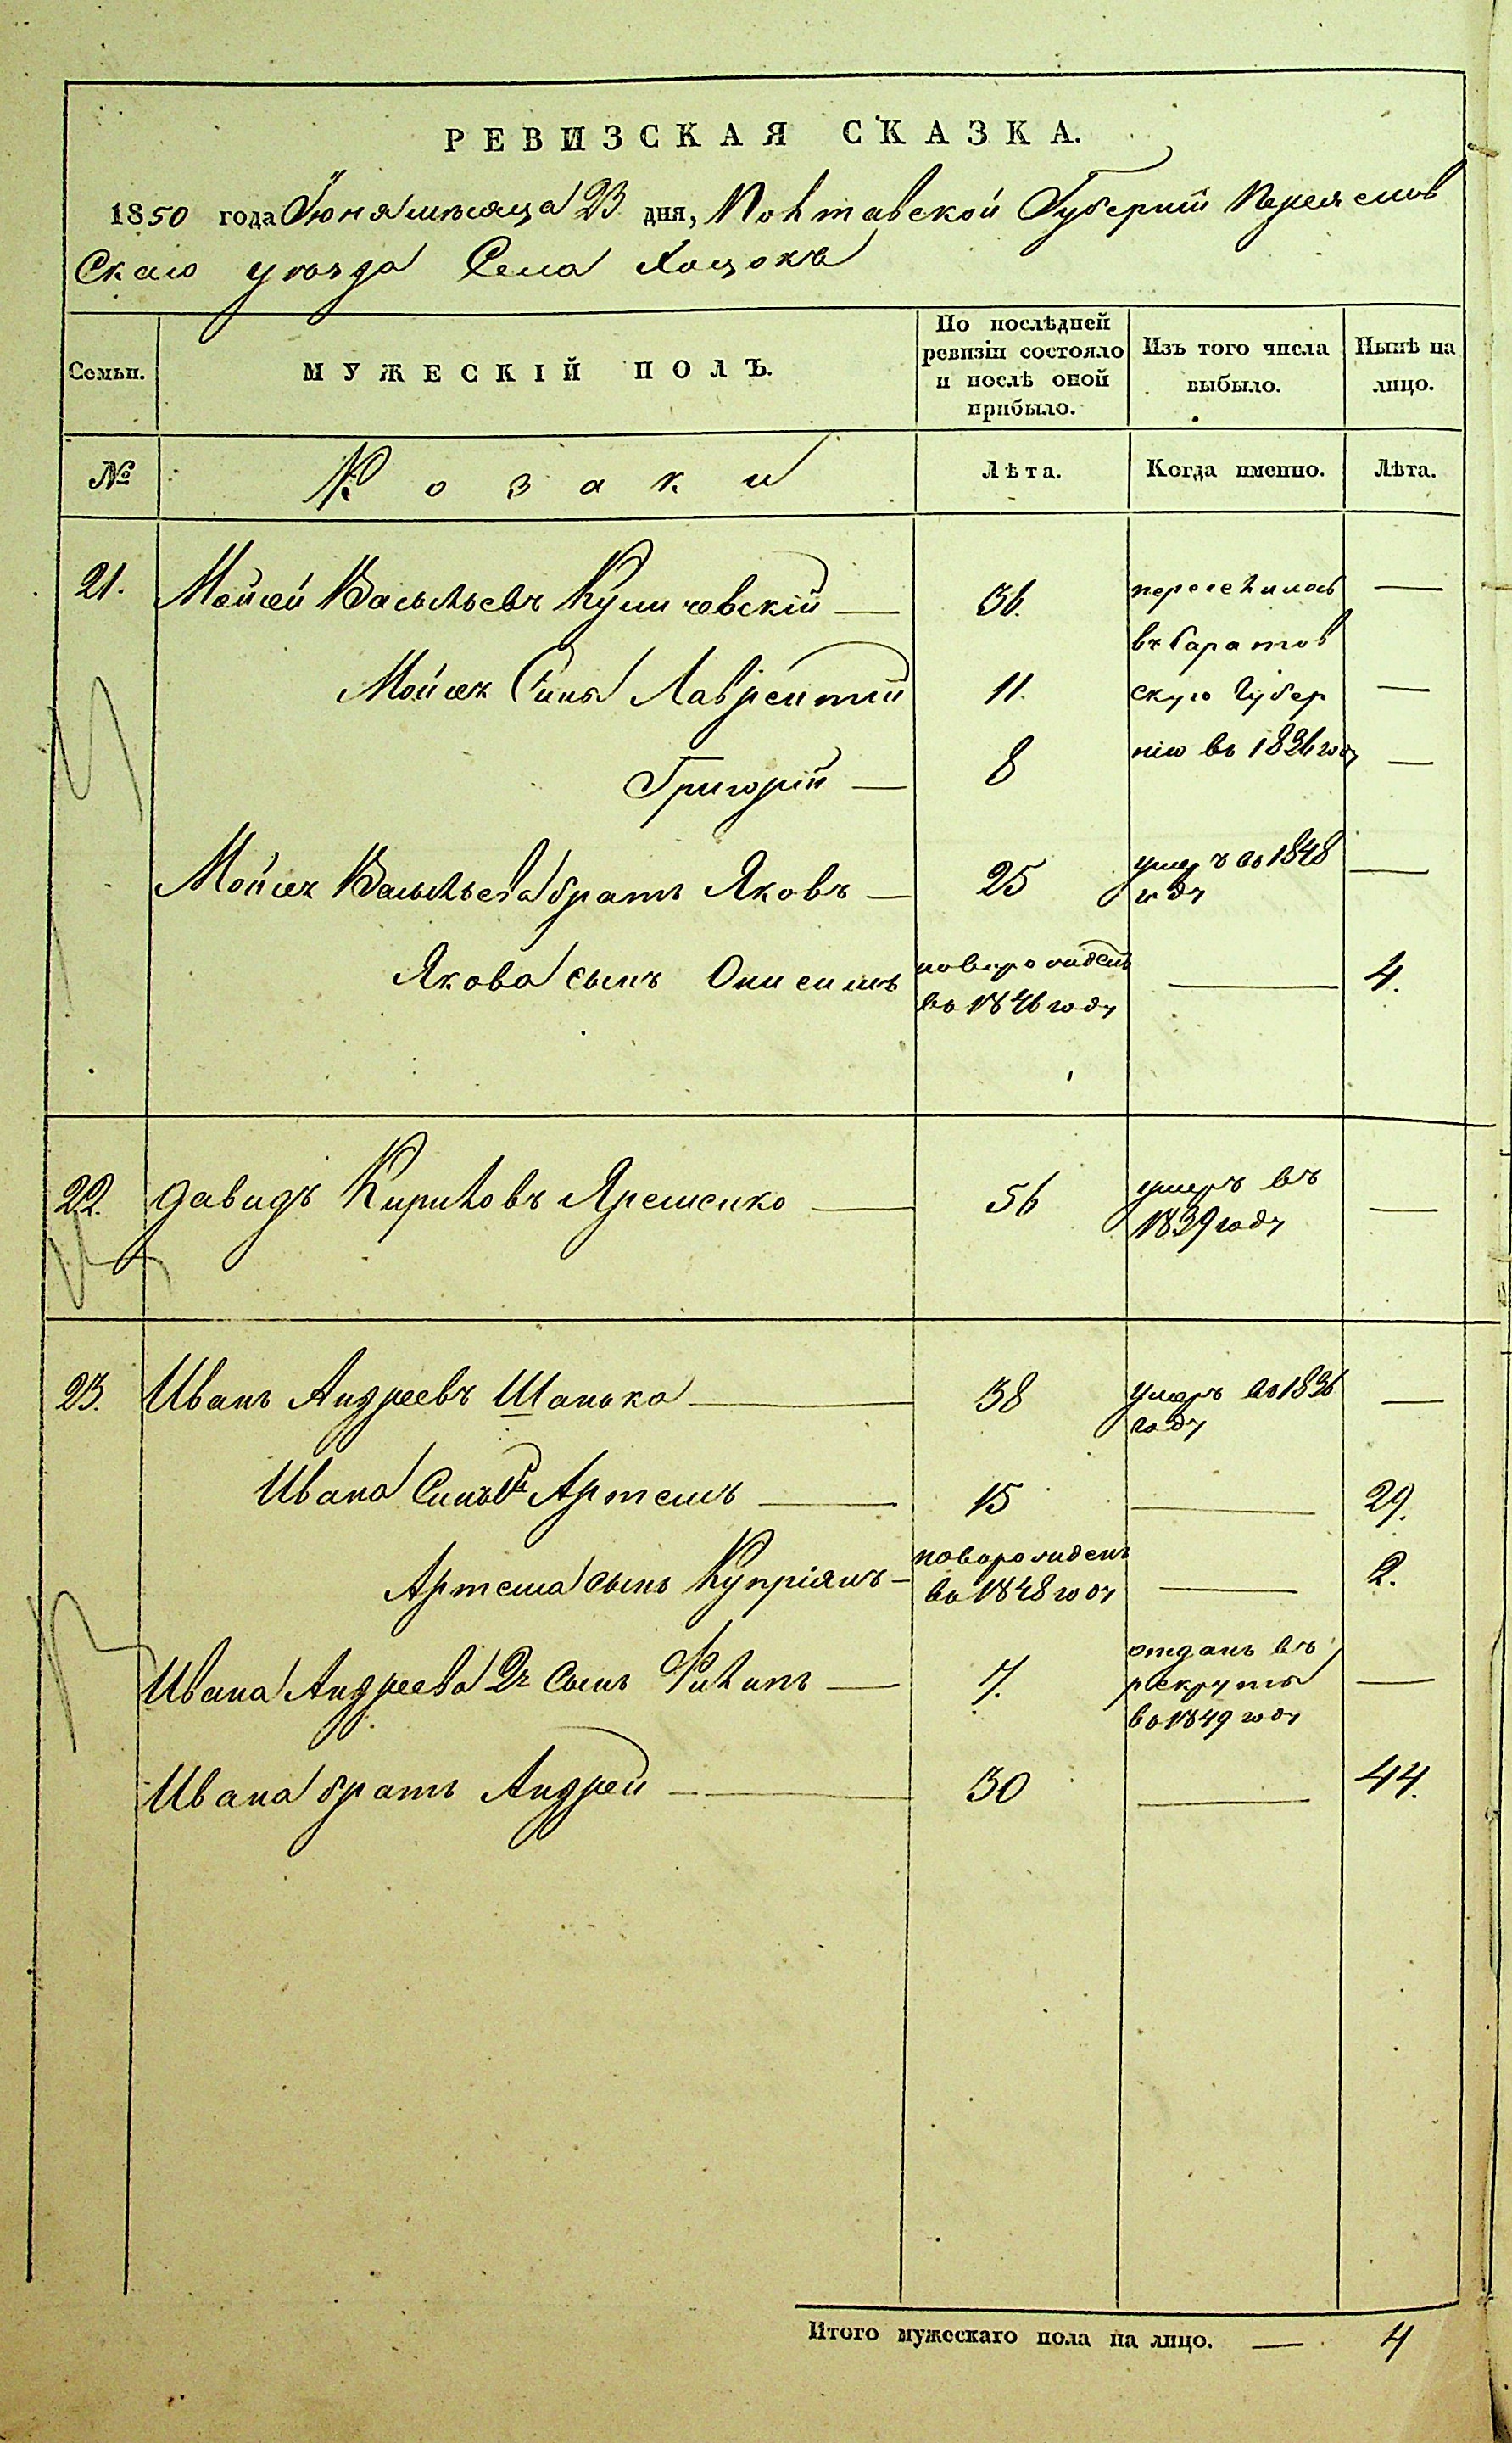 РЕВИЗСКАЯ СКАЗКА.
1850 года Іюня мѣсяца 23 дня, Полтавской Губерніи Переяслов
Скаго уѣзда Села Хоцокъ
Семьи.
МУЖЕСКІЙ ПОЛЪ.
По послѣдней
ревизіи состояло
и послѣ оной
прибыло.
Изъ того числа
выбыло.
Нынѣ на
лицо.
№
Козаки
Лѣта.
Когда именно.
Лѣта.
21. Мойсей Васильевъ — 36. переселились —
въ Саратов
Мойсея Сыны Лаврентій 11. скую Губер —
Григорій — 8 нію въ 1836 году —
Мойсея Васильева братъ Яковъ — 25 умеръ въ 1848 —
году
Якова сынъ Онисимъ новорожденъ — 4.
въ 1846 году
22. Давидъ Кириловъ Яременко — 56 умеръ въ —
1839 году
23. Иванъ Андреевъ Шанька — 38 умеръ въ 1836 —
году
Ивана Сынъ Артемъ — 15 — 29.
Артема сынъ Купріянъ — новорожденъ — 2.
въ 1848 году
Ивана Андреева 2й Сынъ Филипъ — 7. отданъ въ —
рекруты
въ 1849 году
Ивана братъ Андрей — 30 — 44.
Итого мужескаго пола на лицо. — 4